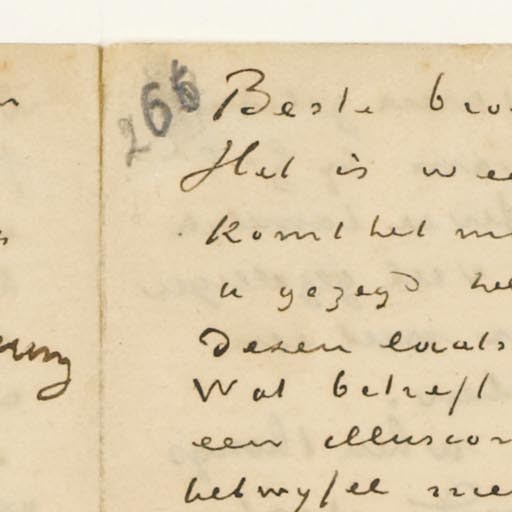 266
Beste bro
Het is wee
Komt het m
u gezegd he
Dezen laats
Wat betreft
een illusion
betwyfel nie